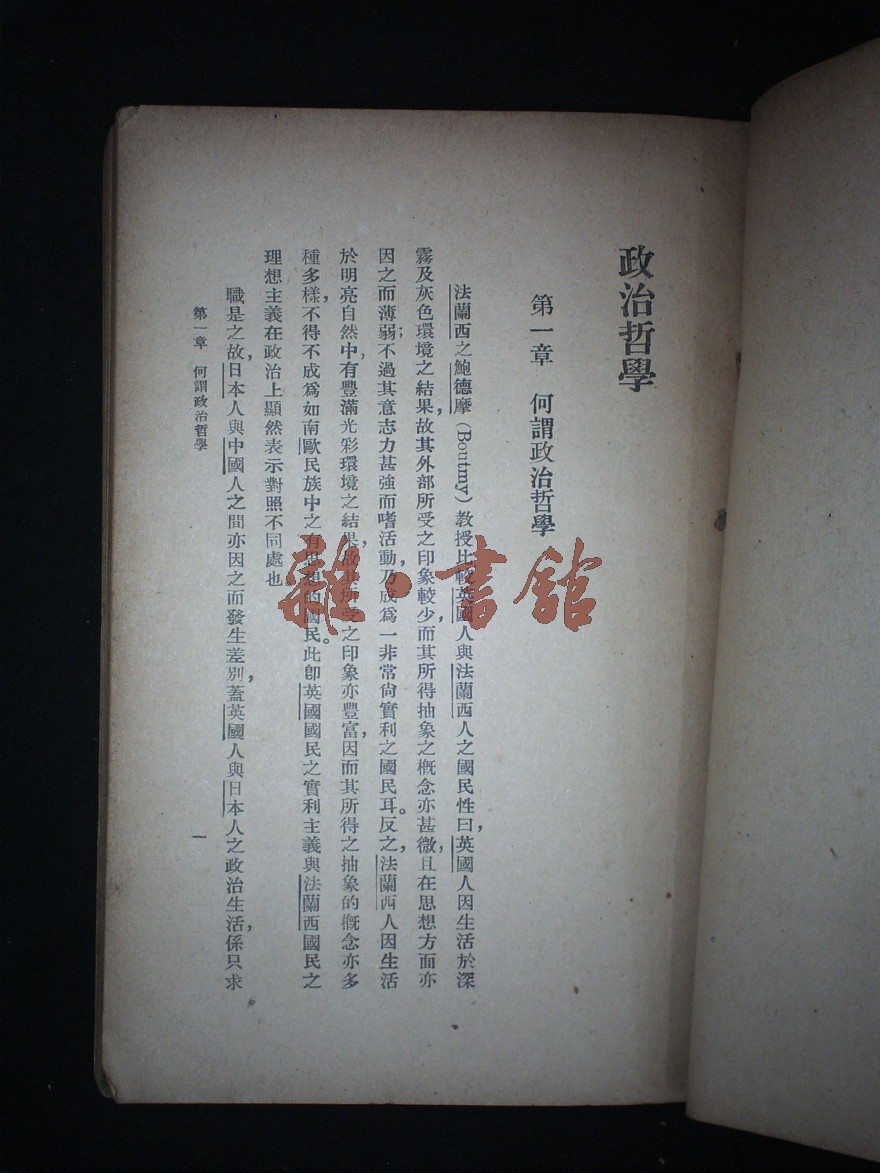 政治哲學
第一章　何謂政治哲學
法蘭西之鮑德摩（Boutmy）教授比較英國人與法蘭西人之國民性曰，英國人因生活於深
霧及灰色環境之結果，故其外部所受之印象較少，而其所得抽象之概念亦甚微，且在思想方面亦
因之而薄弱；不過其意志力甚強而嗜活動，乃成爲一非常尙實利之國民耳。反之，法蘭西人因生活
於明亮自然中，有豐滿光彩環境之結果，故其所受之印象亦豐富，因而其所得之抽象的概念亦多
種多樣，不得不成爲如南歐民族中之有思想的國民。此卽英國國民之實利主義與法蘭西國民之
理想主義在政治上顯然表示對照不同處也。
職是之故，日本人與中國人之間亦因之而發生差別，蓋英國人與日本人之政治生活，係只求
第一章　何謂政治哲學
一
雜·書館